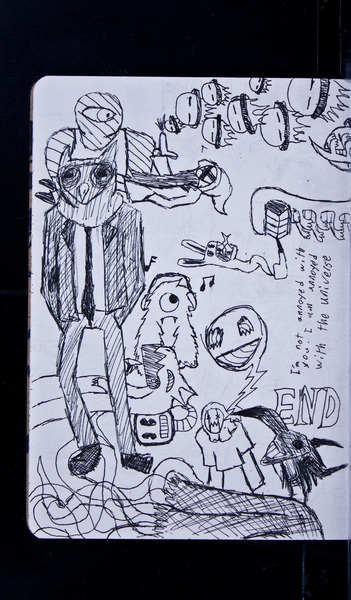 I'm not annoyed with
you... I am annoyed
with the universe
END